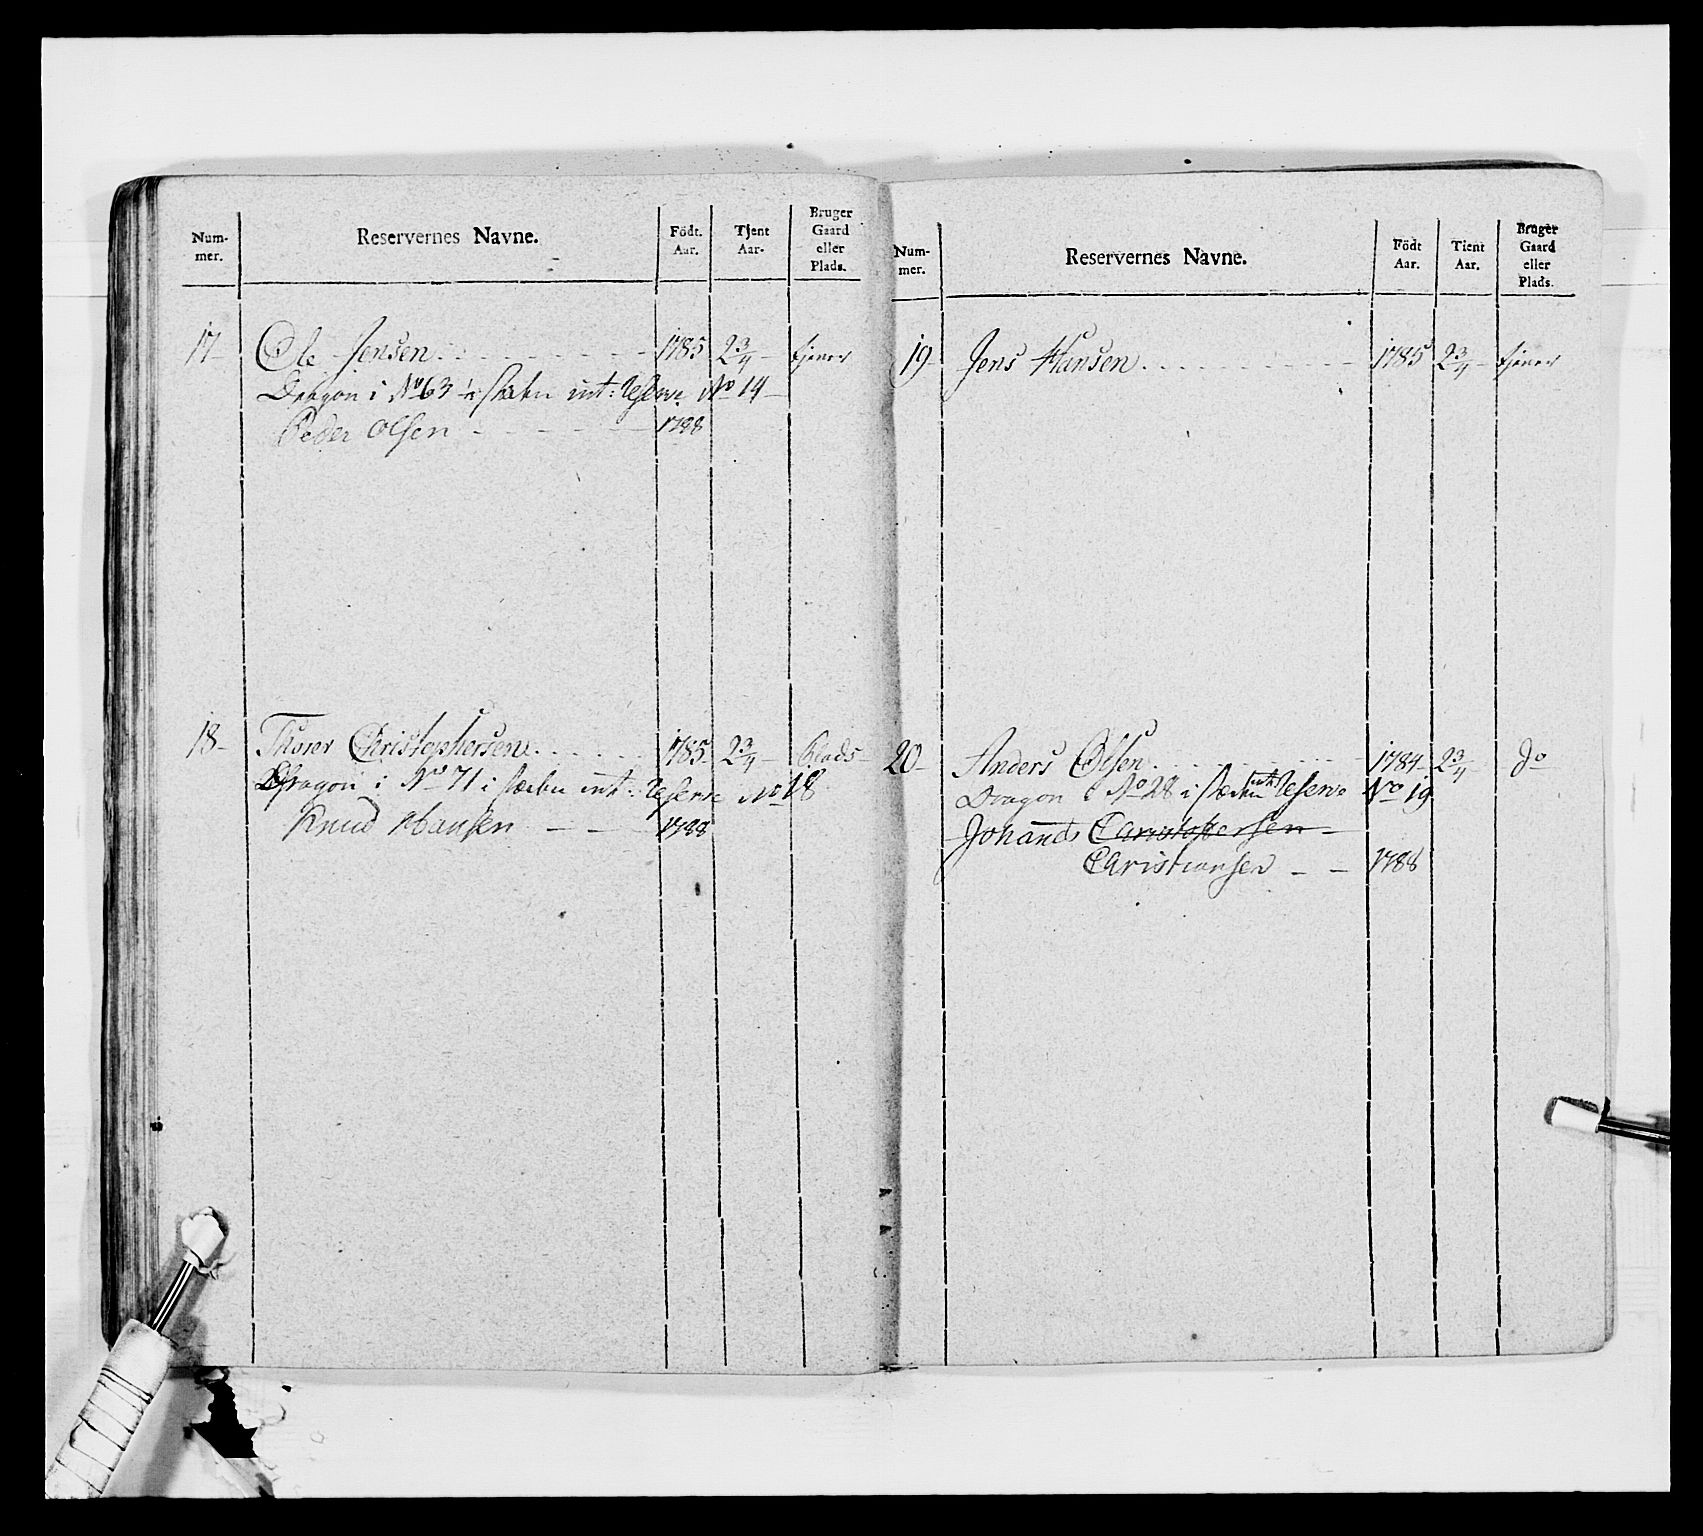 Num-mer. Reservernes Navne. Födt. Aar. Tjent Aar. Bruger Gaard eller Plads.
17 Ole Jensen 1785 2 3/4 tjener
Dragon i No 63 i stæden int: Reserve No 14
Peder Olsen 1788
18 Thorer Christophersen 1785 2 3/4 Plads
Dragon i No 71 i stæden int: Reserve No 18
Knud Hansen 1788
Num-mer. Reservernes Navne. Födt Aar. Tient Aar. Bruger Gaard eller Plads.
19 Jens Hansen 1785 2 3/4 tjener
20 Anders Olsen 1784 2 3/4 do
Dragon i No 28 i stæden int: Reserve No 19
Johannes Christophersen
Christiansen 1788